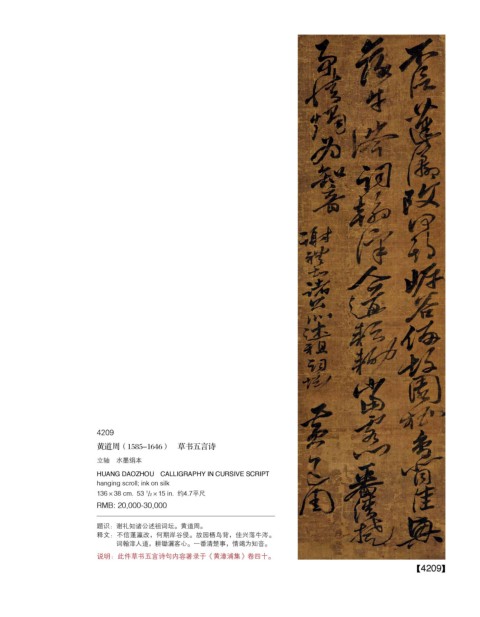 不信蓬瀛改岸谷故園佳興
落牛涔詞翰淳人道耕
為知音
謝諸公述祖詞壇
黃道周
4209
黄道周(1585-1646) 草书五言诗
立轴 水墨绢本
HUANG DAOZHOU CALLIGRAPHY IN CURSIVE SCRIPT
hanging scroll; ink on silk
136×38 cm. 53 1/2×15 in. 约4.7平尺
RMB: 20,000-30,000
题识:谢礼知诸公述祖词坛。黄道周。
释文:不信蓬瀛改,何期岸谷侵。故园栖鸟背,佳兴落牛涔。
词翰淳人道,耕锄满客心。一番清楚事,情竭为知音。
说明:此件草书五言诗句内容著录于《黄漳浦集》卷四十。
【4209】